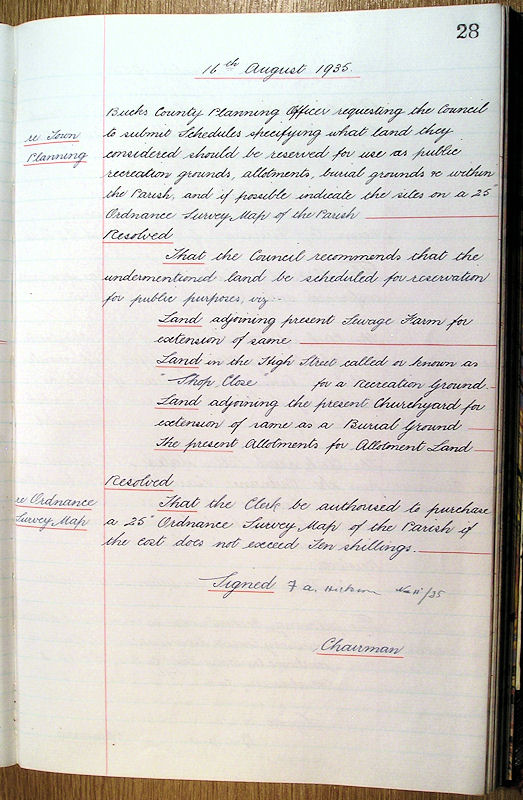 28
16th August 1935.
re Town
Planning
Bucks County Planning Officer requesting the Council
to submit Schedules specifying what land they
considered should be reserved for use as public
recreation grounds, allotments, burial grounds &c within
the Parish, and if possible indicate the sites on a 25"
Ordnance Survey Map of the Parish
Resolved
That the Council recommends that the
undermentioned land be scheduled for reservation
for public purposes, viz:-
Land adjoining present Sewage Farm for
extension of same
Land in the High Street called or known as
"Shop Close" for a Recreation Ground
Land adjoining the present Churchyard for
extension of same as a Burial Ground
The present Allotments for Allotment Land
re Ordnance
Survey Map
Resolved
That the Clerk be authorised to purchase
a 25" Ordnance Survey Map of the Parish if
the cost does not exceed Ten shillings.
Signed F a. /35
Chairman